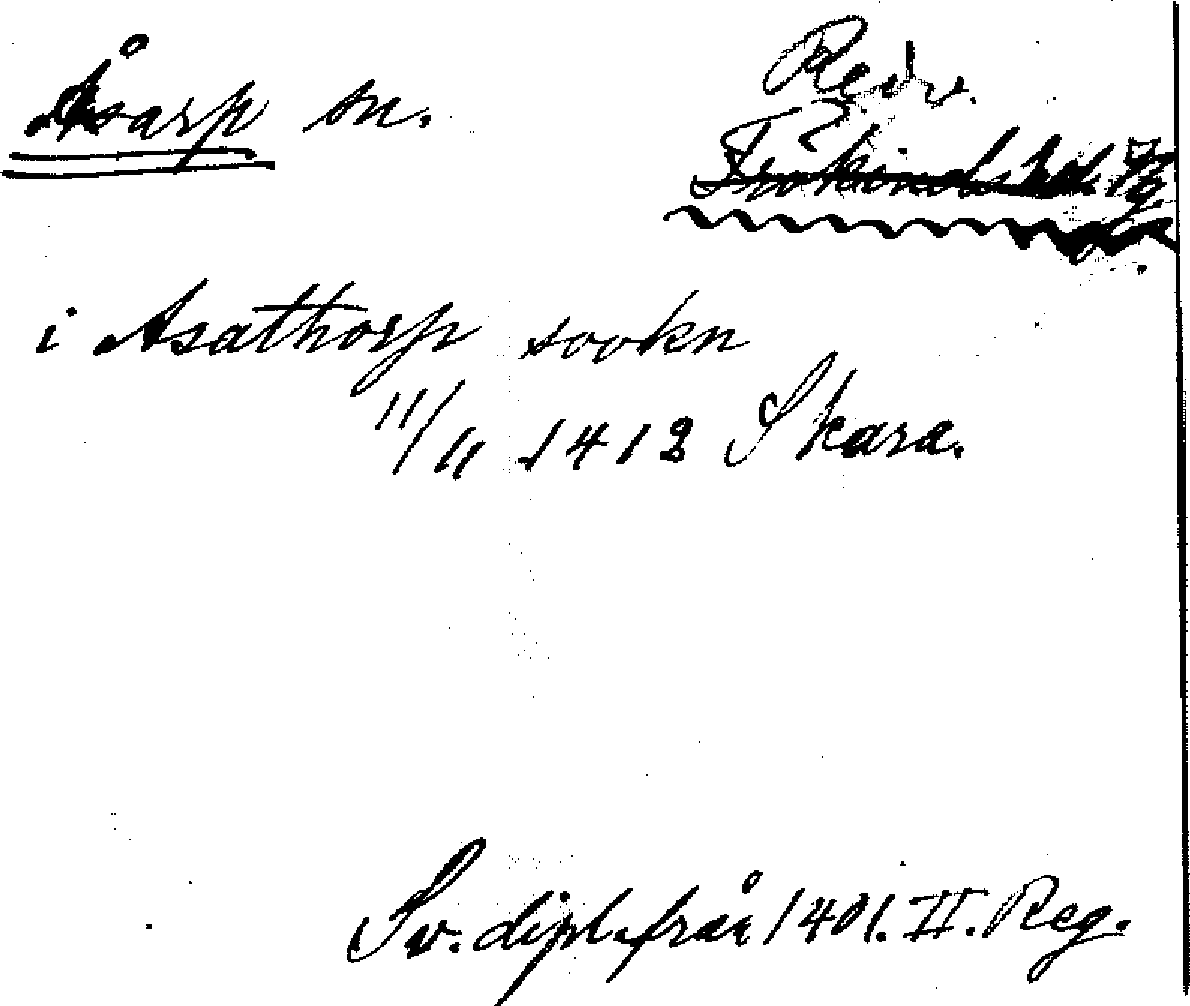 Åsarp sn.
Redv.
Frökinds hd. Vg
i Asathorp sookn
11/11 1412 Skara.
Sv. dipl. från 1401. II. Reg.